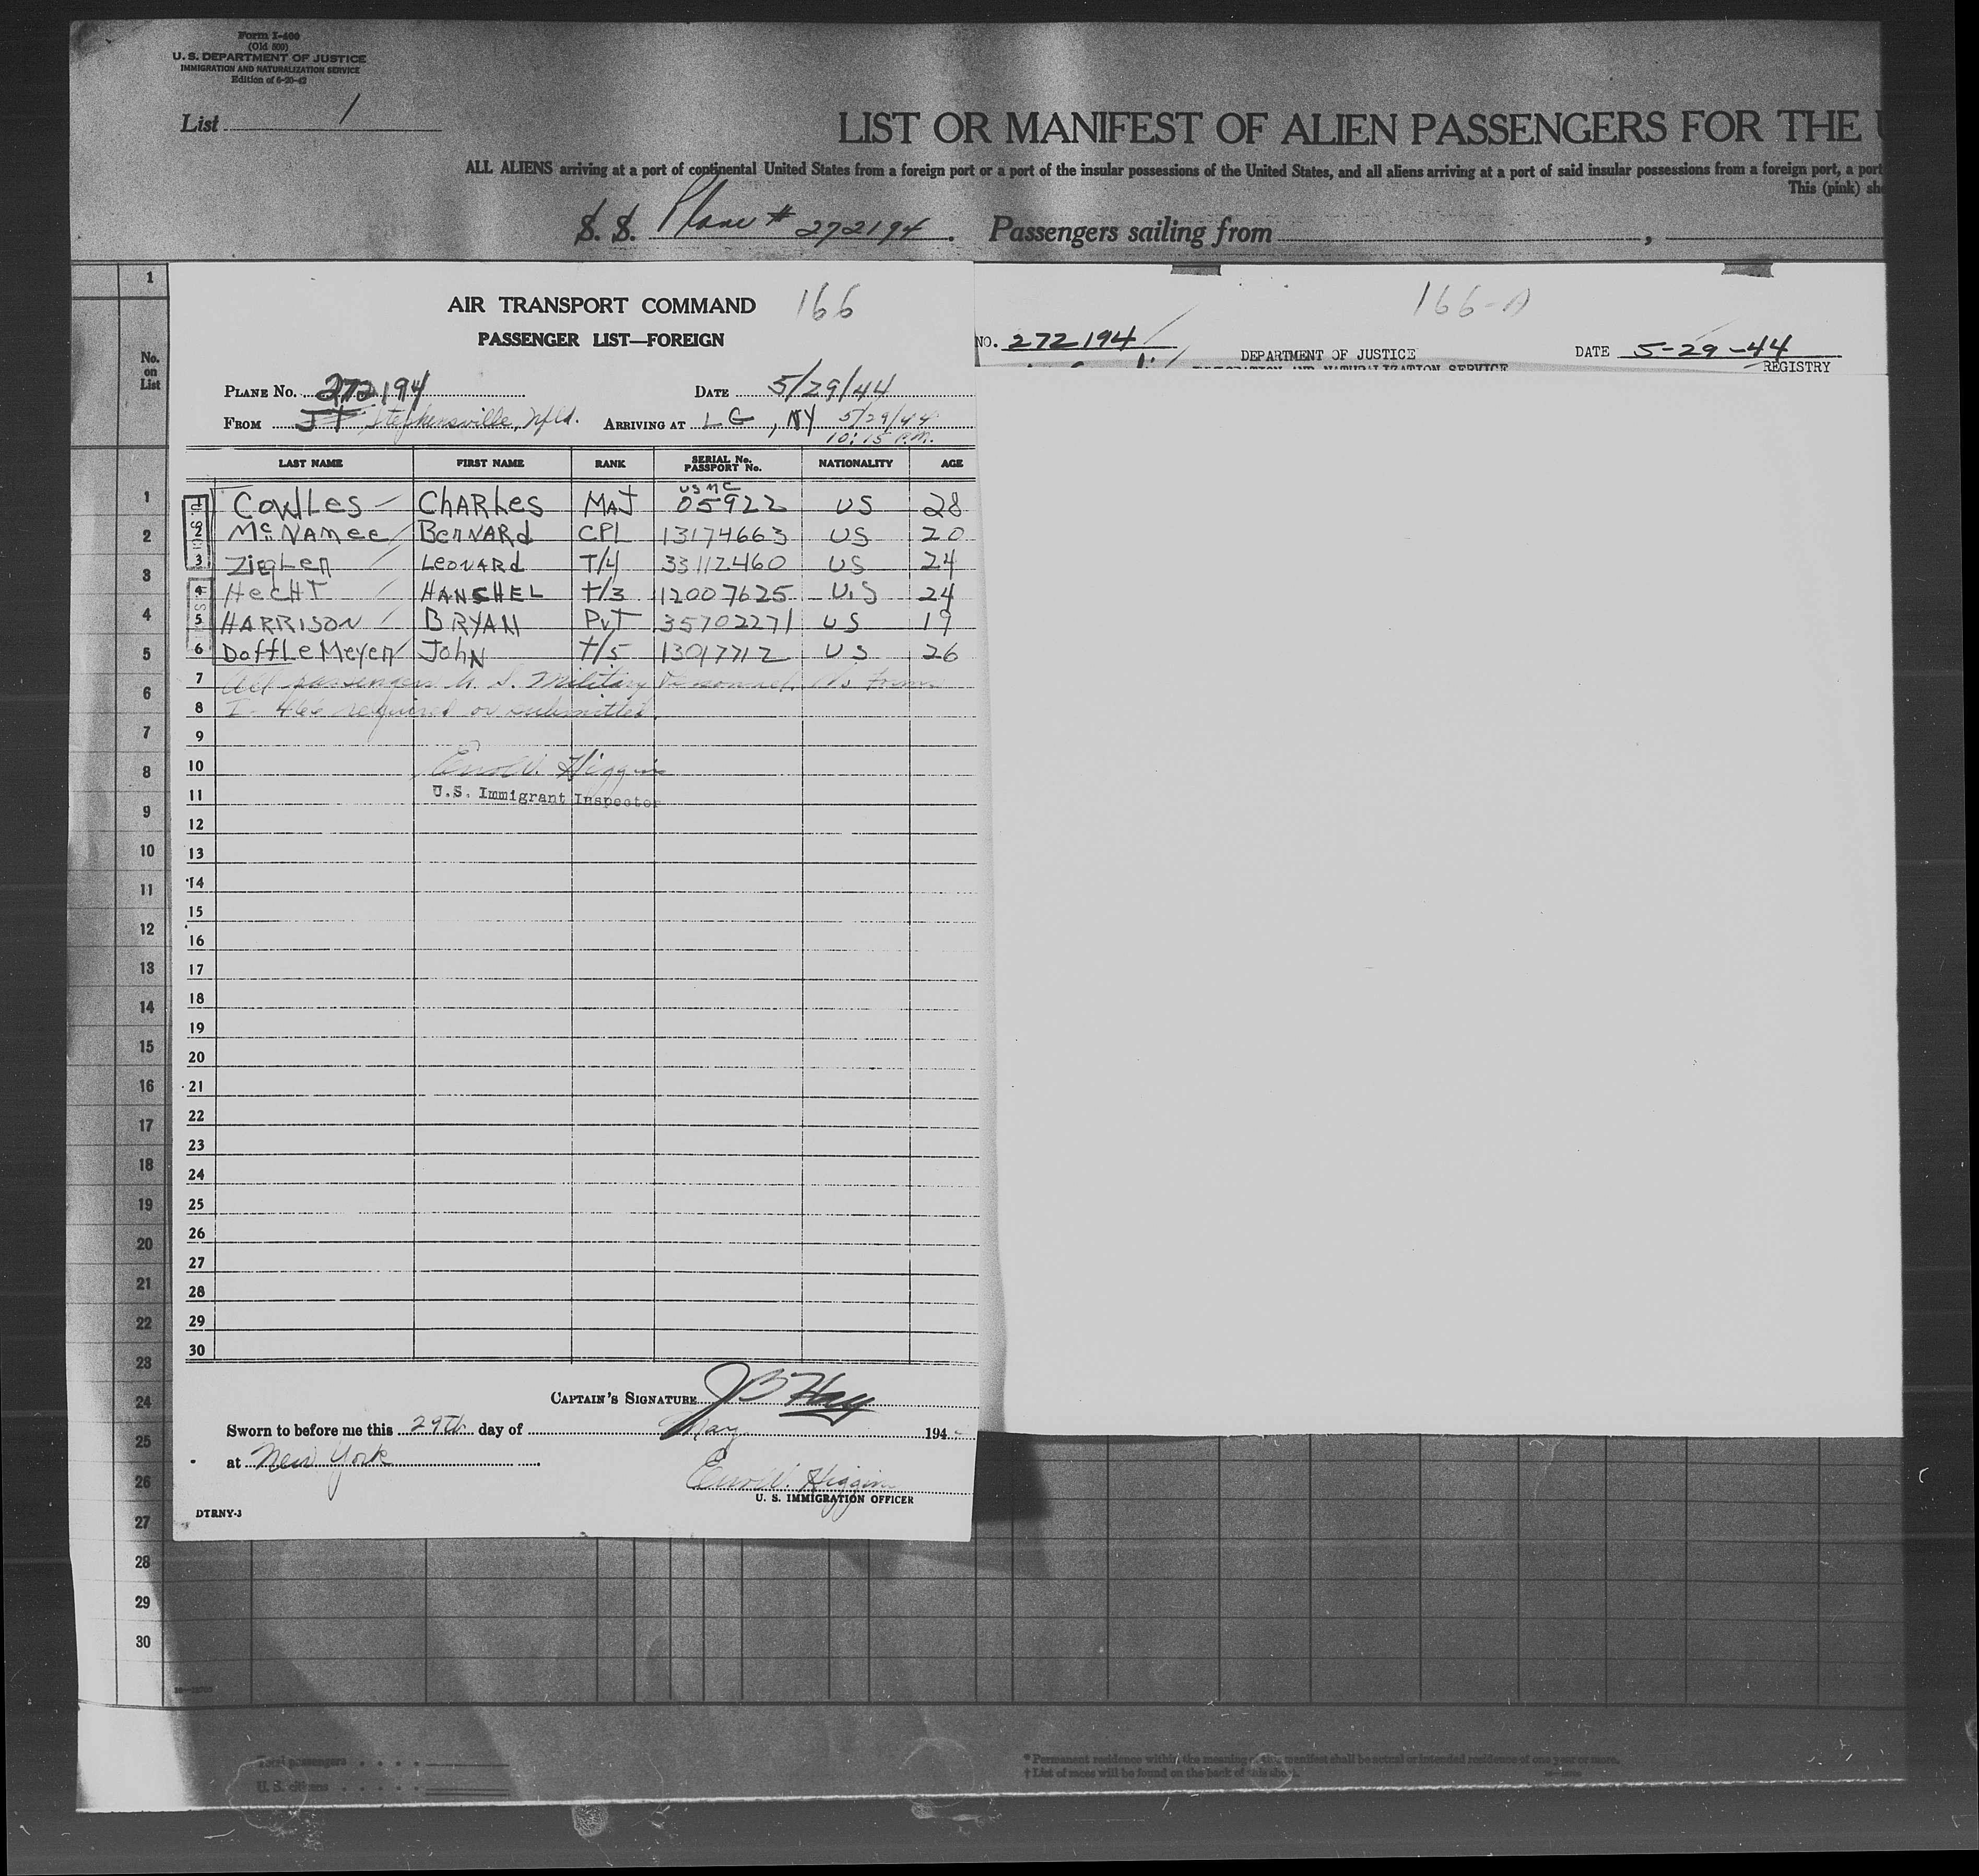 Form I-400
(Old 500)
U. S. DEPARTMENT OF JUSTICE
IMMIGRATION AND NATURALIZATION SERVICE
Edition of 6-20-42
List 1
LIST OR MANIFEST OF ALIEN PASSENGERS FOR THE
ALL ALIENS arriving at a port of continental United States from a foreign port or a port of the insular possessions of the United States, and all aliens arriving at a port of said insular possessions from a foreign port, a port
This (pink) she
S. S. Plane # 272194. Passengers sailing from ,
No. on List
AIR TRANSPORT COMMAND 166
PASSENGER LIST—FOREIGN
PLANE No. 272194 DATE 5/29/44
FROM Stephensville, Nfld. ARRIVING AT LG, NY 5/29/44
10:15 P.M.
LAST NAME FIRST NAME RANK SERIAL No. PASSPORT No. NATIONALITY AGE
1 Cowles CHARLes MAJ USMC 05922 US 28
2 McNAMee BeRNARd CPL 13174663 US 20
3 ZiegLeR LeoNARd T/4 33112460 US 24
4 HecHT HANSHEL T/3 12007625 U.S 24
5 HARRISON BRYAN PvT 35702271 US 19
6 DoffLeMeyeR JohN T/5 13017712 US 26
7 All passengers U. S. Military Personnel. No Form
8 I-466 required or submitted.
9
10 Higgins
11 U.S. Immigrant Inspector
12
13
14
15
16
17
18
19
20
21
22
23
24
25
26
27
28
29
30
CAPTAIN'S SIGNATURE JB Hay
Sworn to before me this 29th day of May 194
at New York
Higgins
U. S. IMMIGRATION OFFICER
DTRNY-J
166-A
NO. 272194 DEPARTMENT OF JUSTICE DATE 5-29-44
IMMIGRATION AND NATURALIZATION SERVICE REGISTRY
1
1
2
3
4
5
6
7
8
9
10
11
12
13
14
15
16
17
18
19
20
21
22
23
24
25
26
27
28
29
30
Total passengers
U. S. citizens
* Permanent residence within the meaning of this manifest shall be actual or intended residence of one year or more.
† List of races will be found on the back of this sheet.